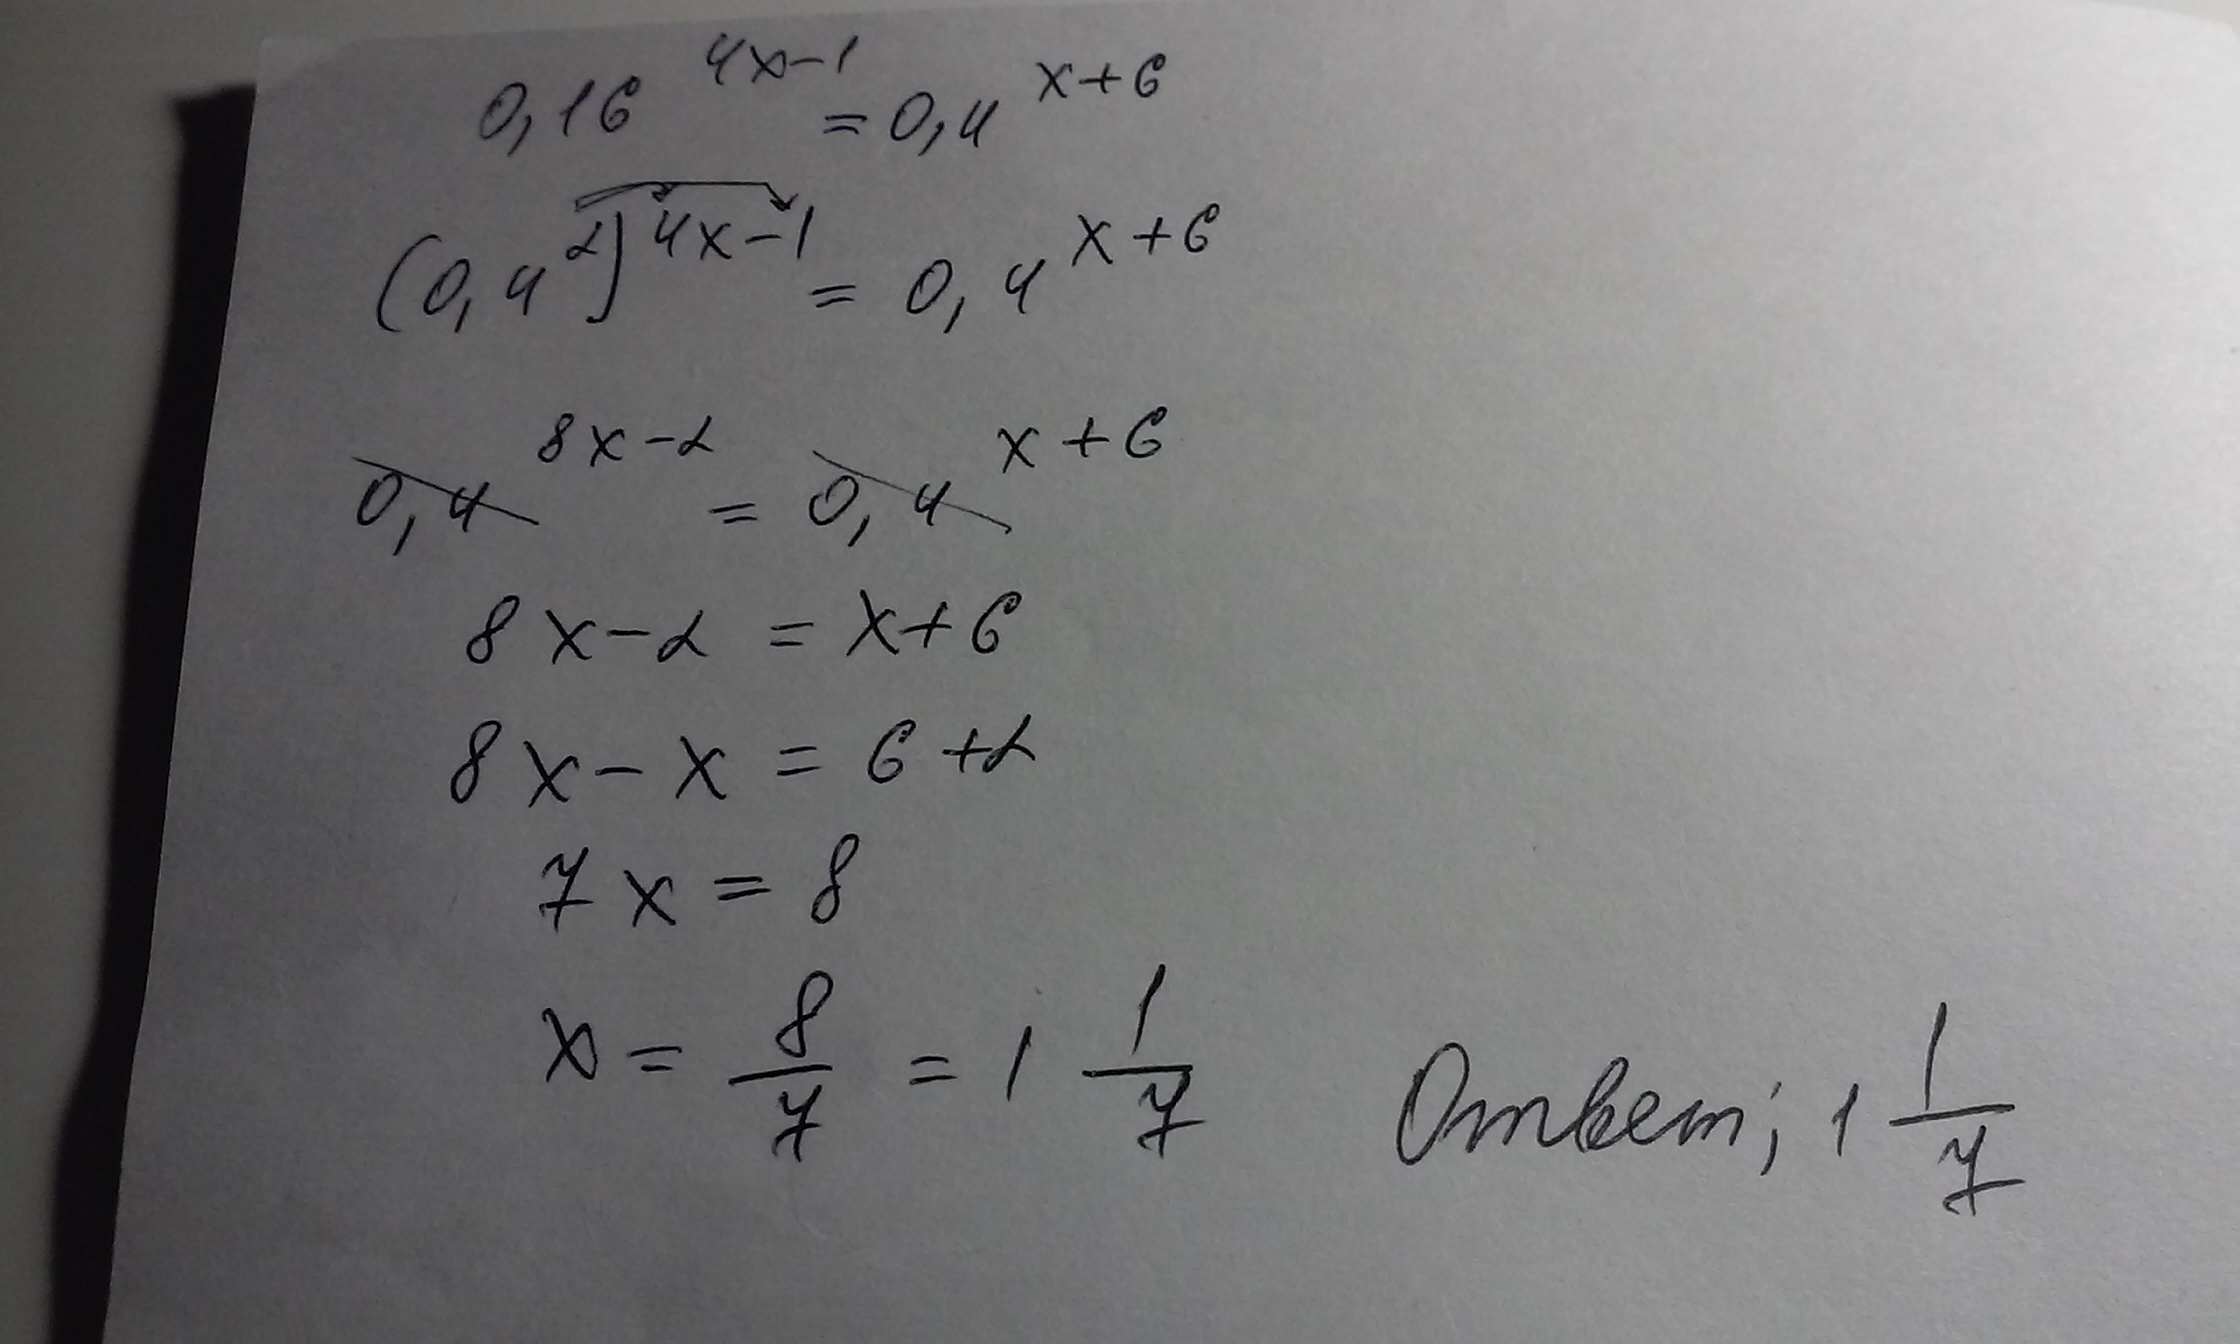 0,16^{4x-1} = 0,4^{x+6}
(0,4^{2})^{4x-1} = 0,4^{x+6}
0,4^{8x-2} = 0,4^{x+6}
8x-2 = x+6
8x-x = 6+2
7x = 8
x = \frac{8}{7} = 1\frac{1}{7} Ответ; 1\frac{1}{7}